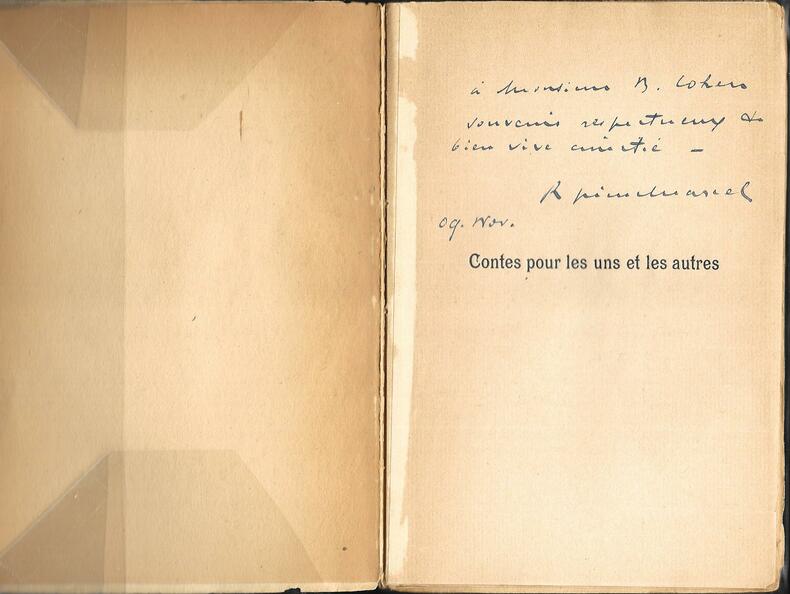 à Monsieur B. Cohen
souvenir respectueux &
bien vive amitié –
R pinchmarcel
09. Nov.
Contes pour les uns et les autres